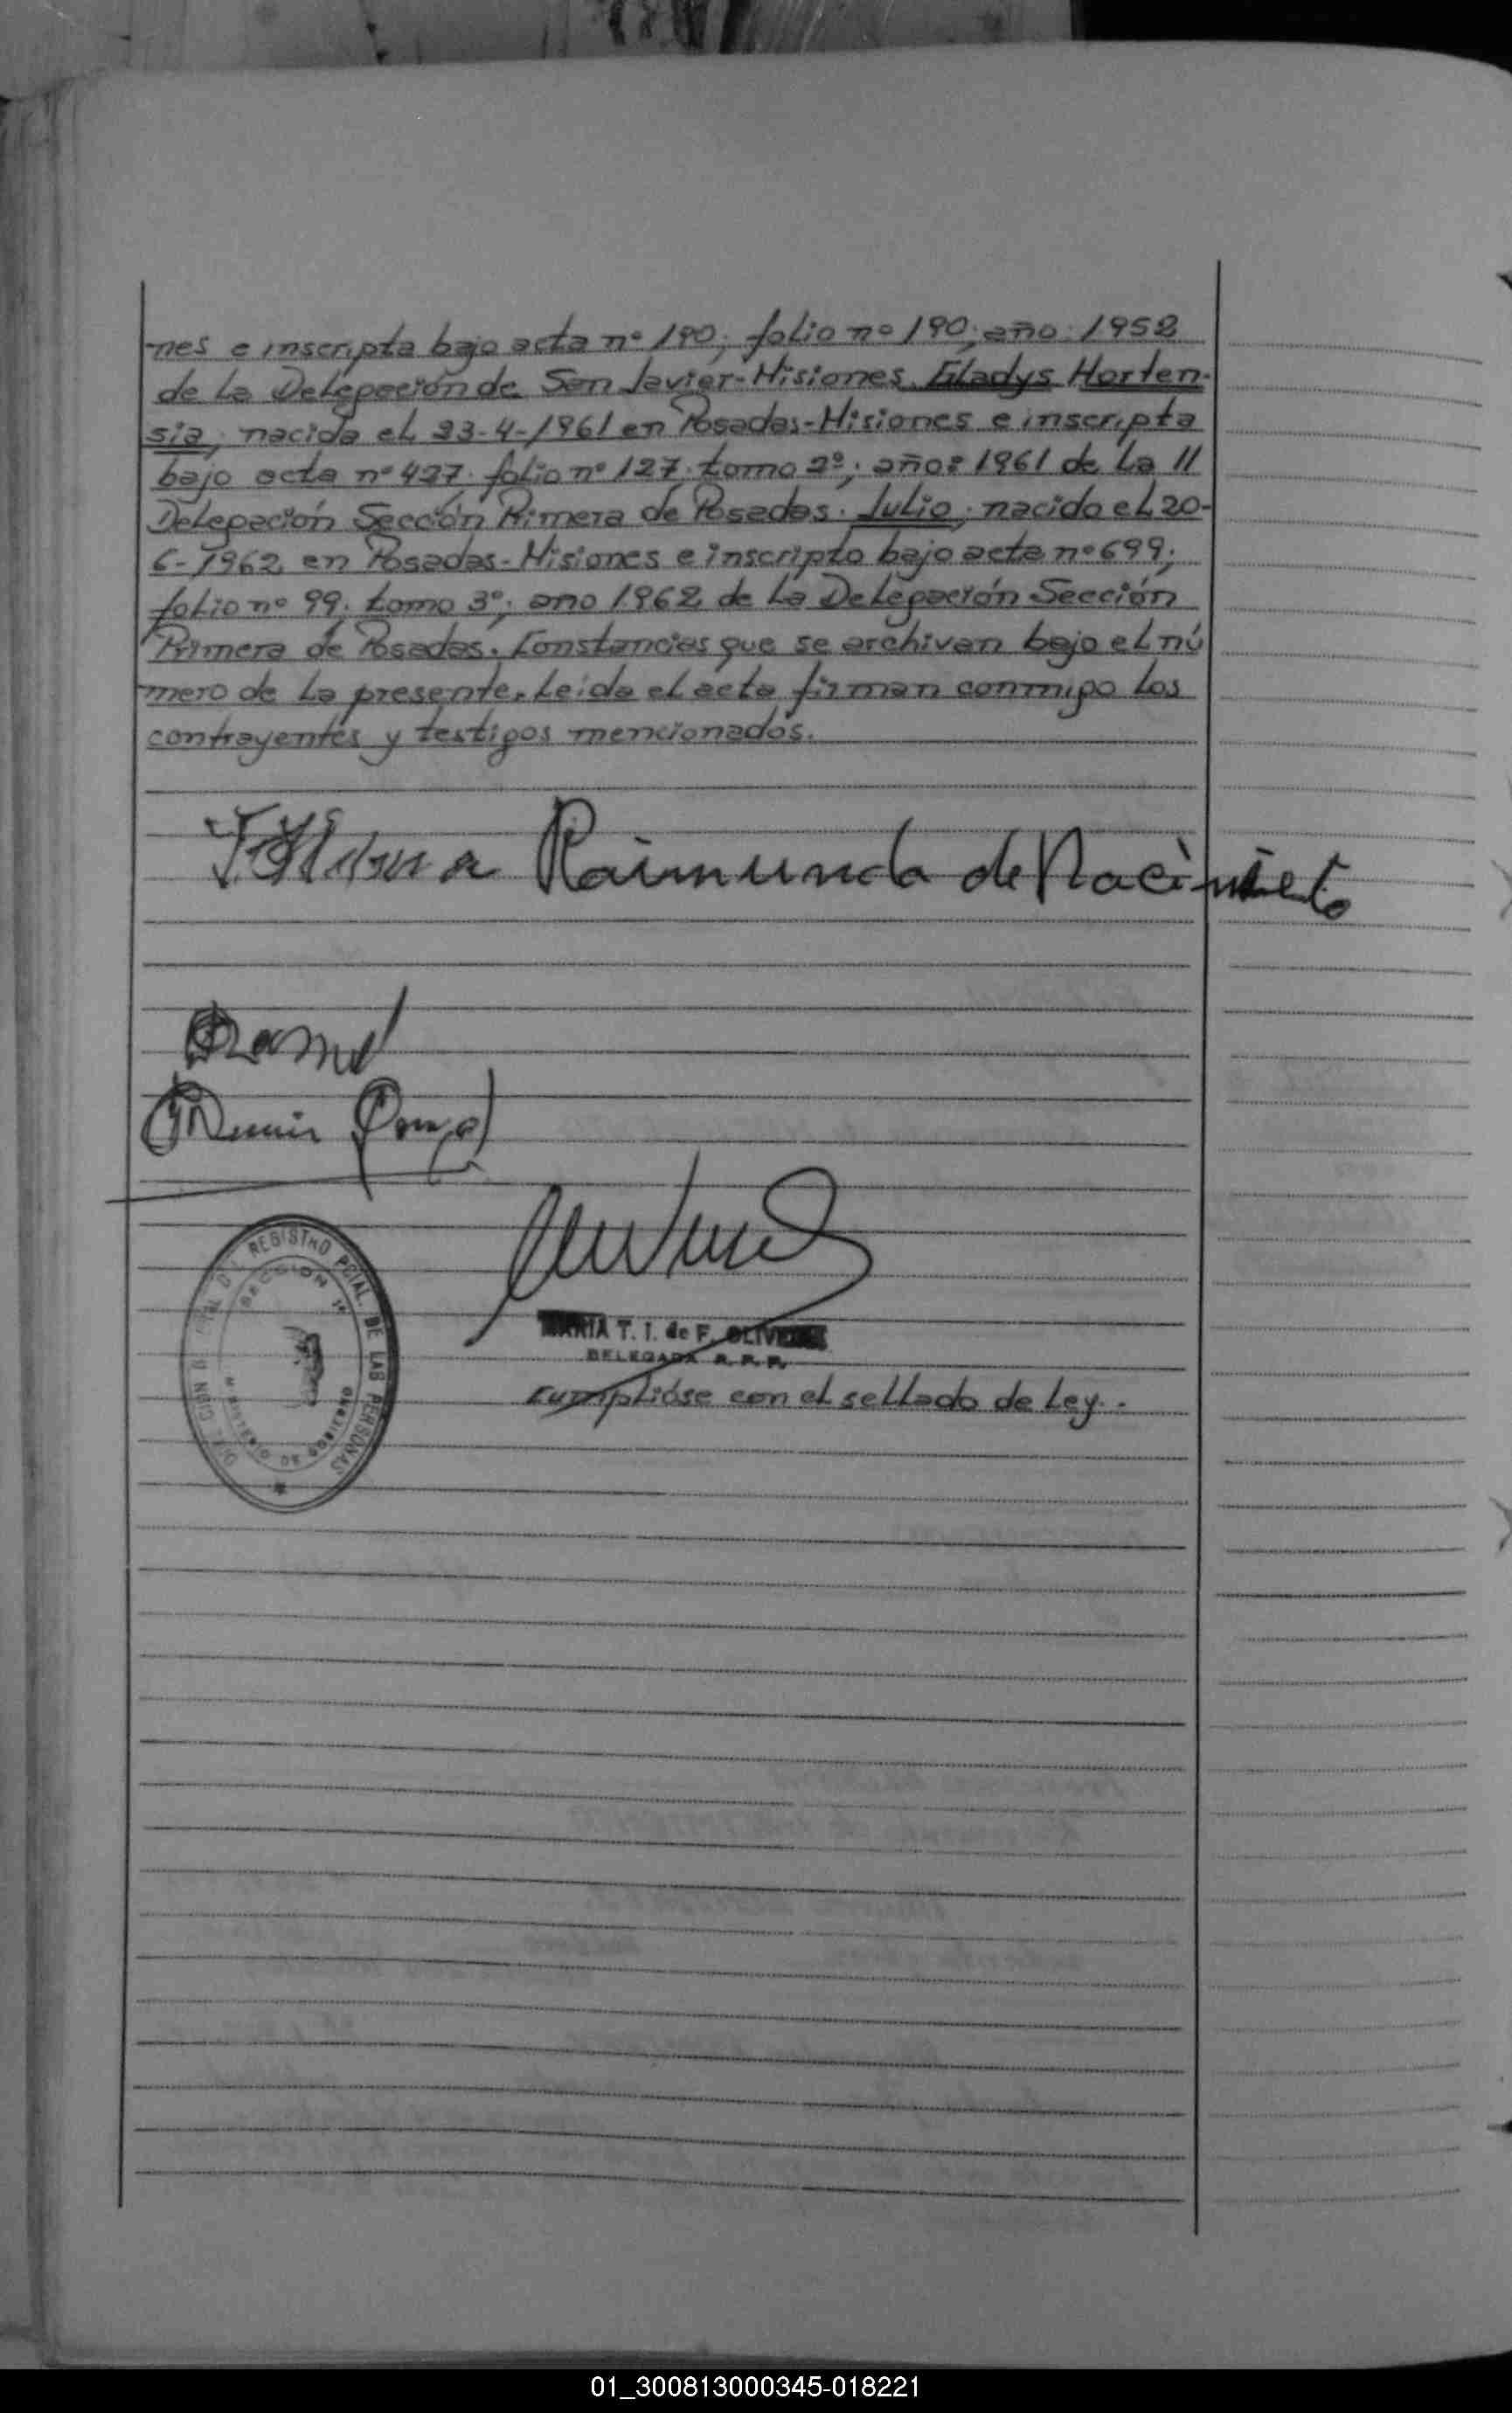 nes e inscripta bajo acta nº 190; folio nº 190; año: 1952
de la Delegación de San Javier-Misiones. Gladys Horten-
sia, nacida el 23-4-1961 en Posadas-Misiones e inscripta
bajo acta nº 427. folio nº 127. tomo 2º; año: 1961 de la
Delegación Sección Primera de Posadas. Julio, nacido el 20-
6-1962 en Posadas-Misiones e inscripto bajo acta nº 699;
folio nº 99. tomo 3º; ano 1962 de la Delegación Sección
Primera de Posadas. Constancias que se archivan bajo el nú
mero de la presente. Leída el acta firman conmigo los
contrayentes y testigos mencionados.
Raimunda de Nacimieto
REGISTRO PCIAL. DE LAS PERSONAS
SECCION 1ª
MARIA T. I. de F. OLIVEIRA
DELEGADA R.P.P.
Cumplióse con el sellado de Ley.
01_300813000345-018221